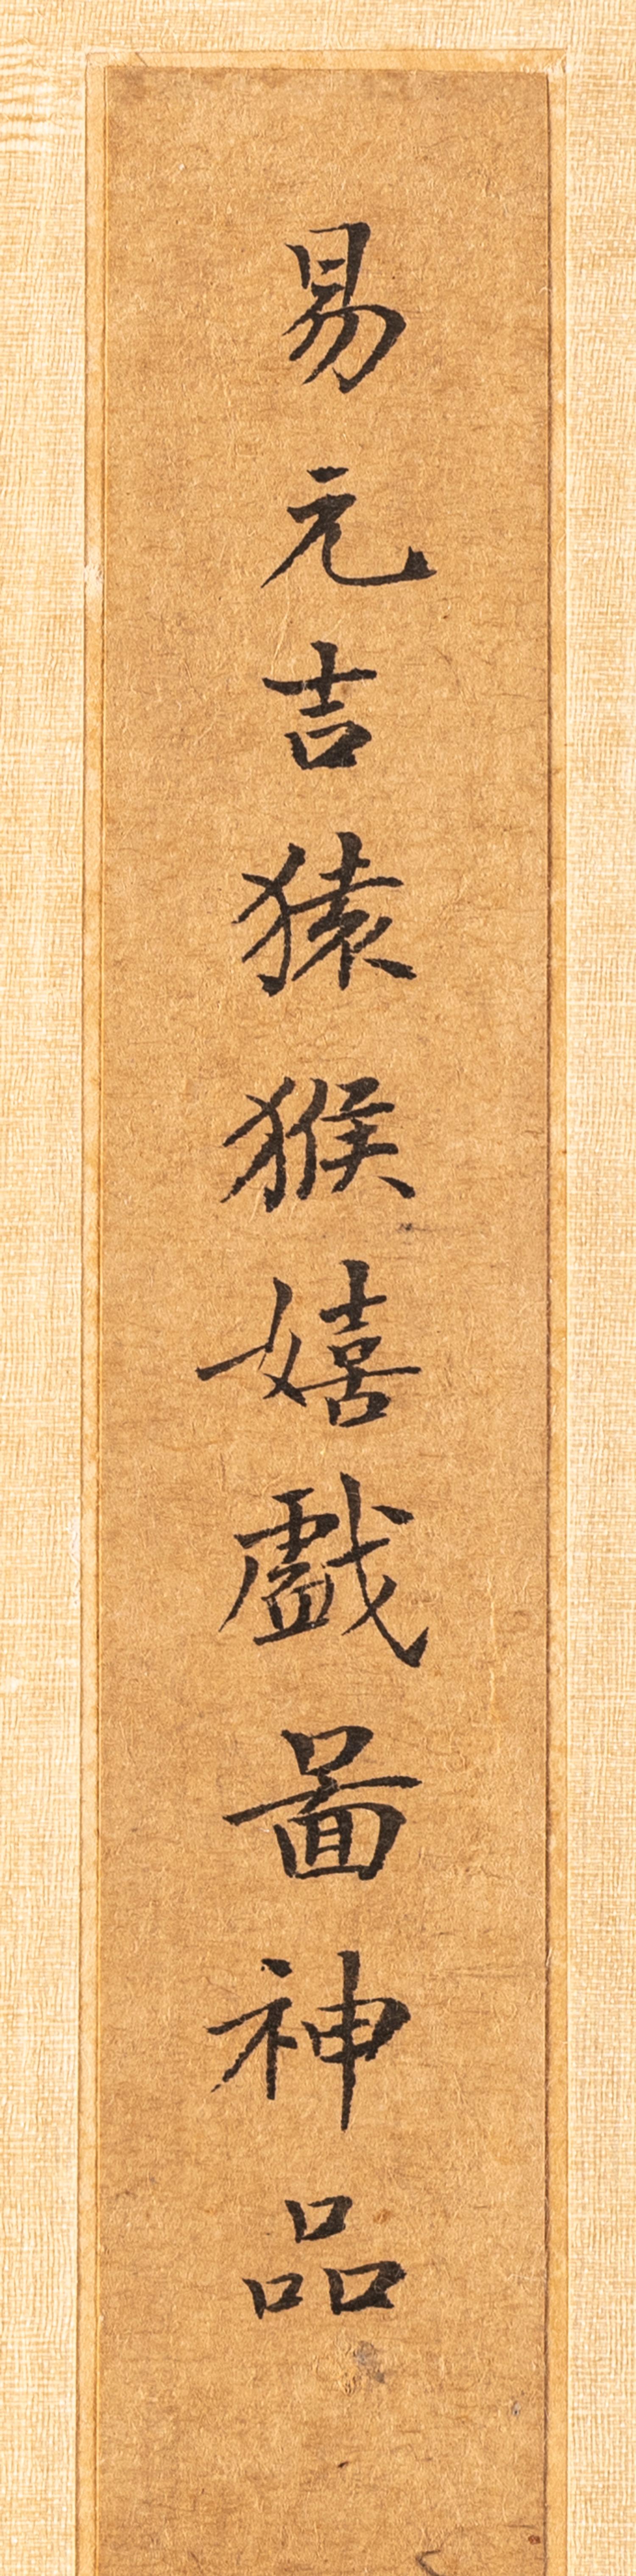 易元吉猿猴嬉戲啚神品